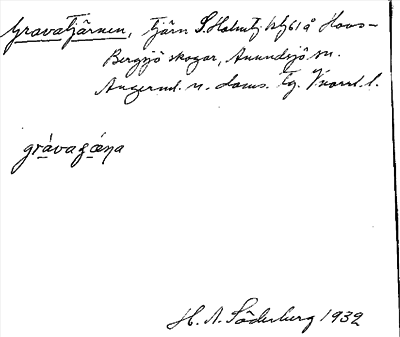 Gravatjärnen, tjärn S. Holmtj. bl 61 å Hoos-
Bergsjö skogar, Anundsjö sn.
Ångerml. n. doms. tg. Vnorrl. l.
gràvaʒæṇa
H. A. Söderberg 1932